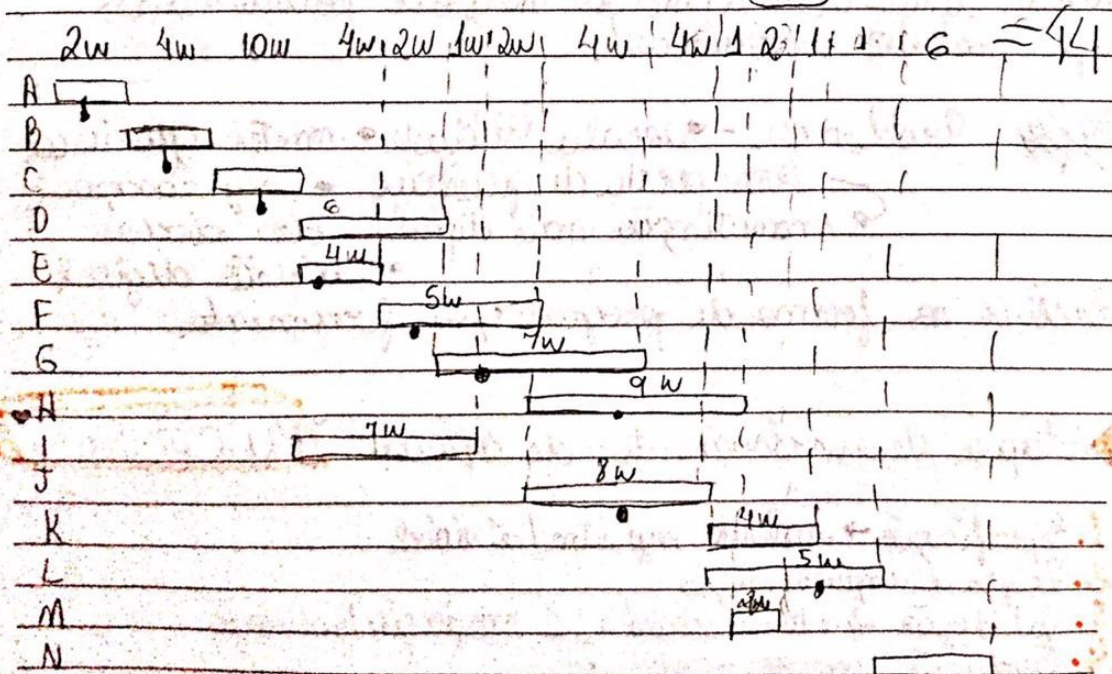 2w 4w 10w 4w 2w 1w 2w 4w 4w 1 2 1 1 6 = 44
A
B
C
D 6
E 4w
F 5w
G 7w
H 9w
I 7w
J 8w
K 4w
L 5w
M
N